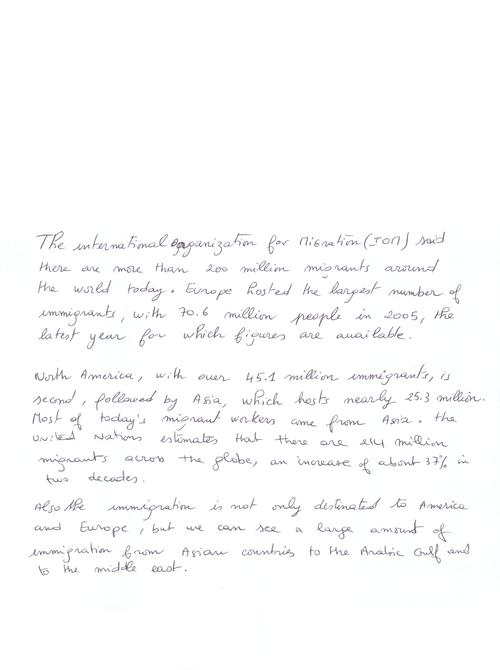 The international organization for Migration (IOM) said
there are more than 200 million migrants around
the world today. Europe hosted the largest number of
immigrants, with 70.6 million people in 2005, the
latest year for which figures are available.
North America, with over 45.1 million immigrants, is
second, followed by Asia, which hosts nearly 25.3 million.
Most of today's migrant workers come from Asia. the
United Nations estimates that there are 214 million
migrants across the globe, an increase of about 37% in
two decades.
Also the immigration is not only destinated to America
and Europe, but we can see a large amount of
immigration from Asian countries to the Arabic Gulf and
to the middle east.